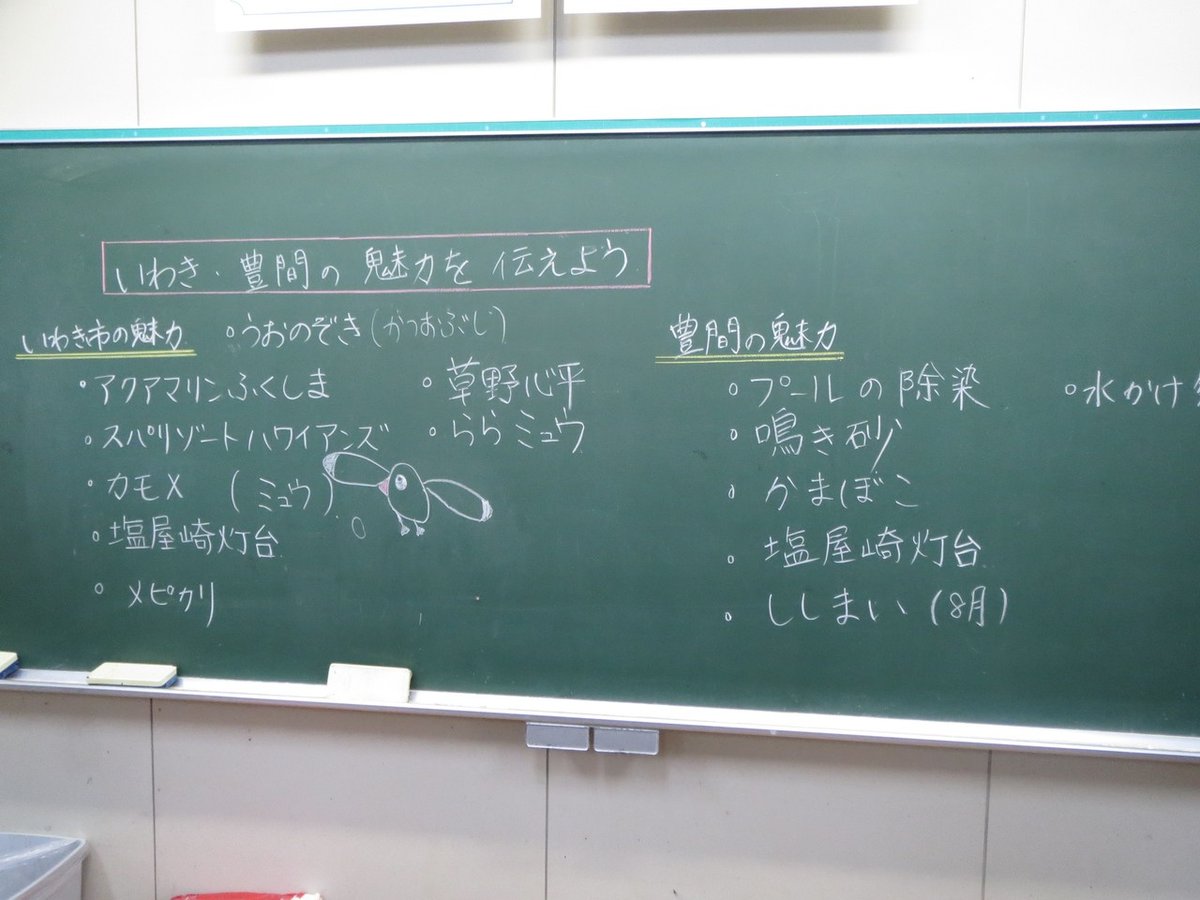 いわき・豊間の魅力を伝えよう
いわき市の魅力
○うおのぞき(かつおぶし)
○アクアマリンふくしま
○スパリゾートハワイアンズ
○カモメ (ミュウ)
○塩屋崎灯台
○メヒカリ
○草野心平
○ららミュウ
豊間の魅力
○プールの除染
○鳴き砂
○かまぼこ
○塩屋崎灯台
○ししまい(8月)
○水かけ